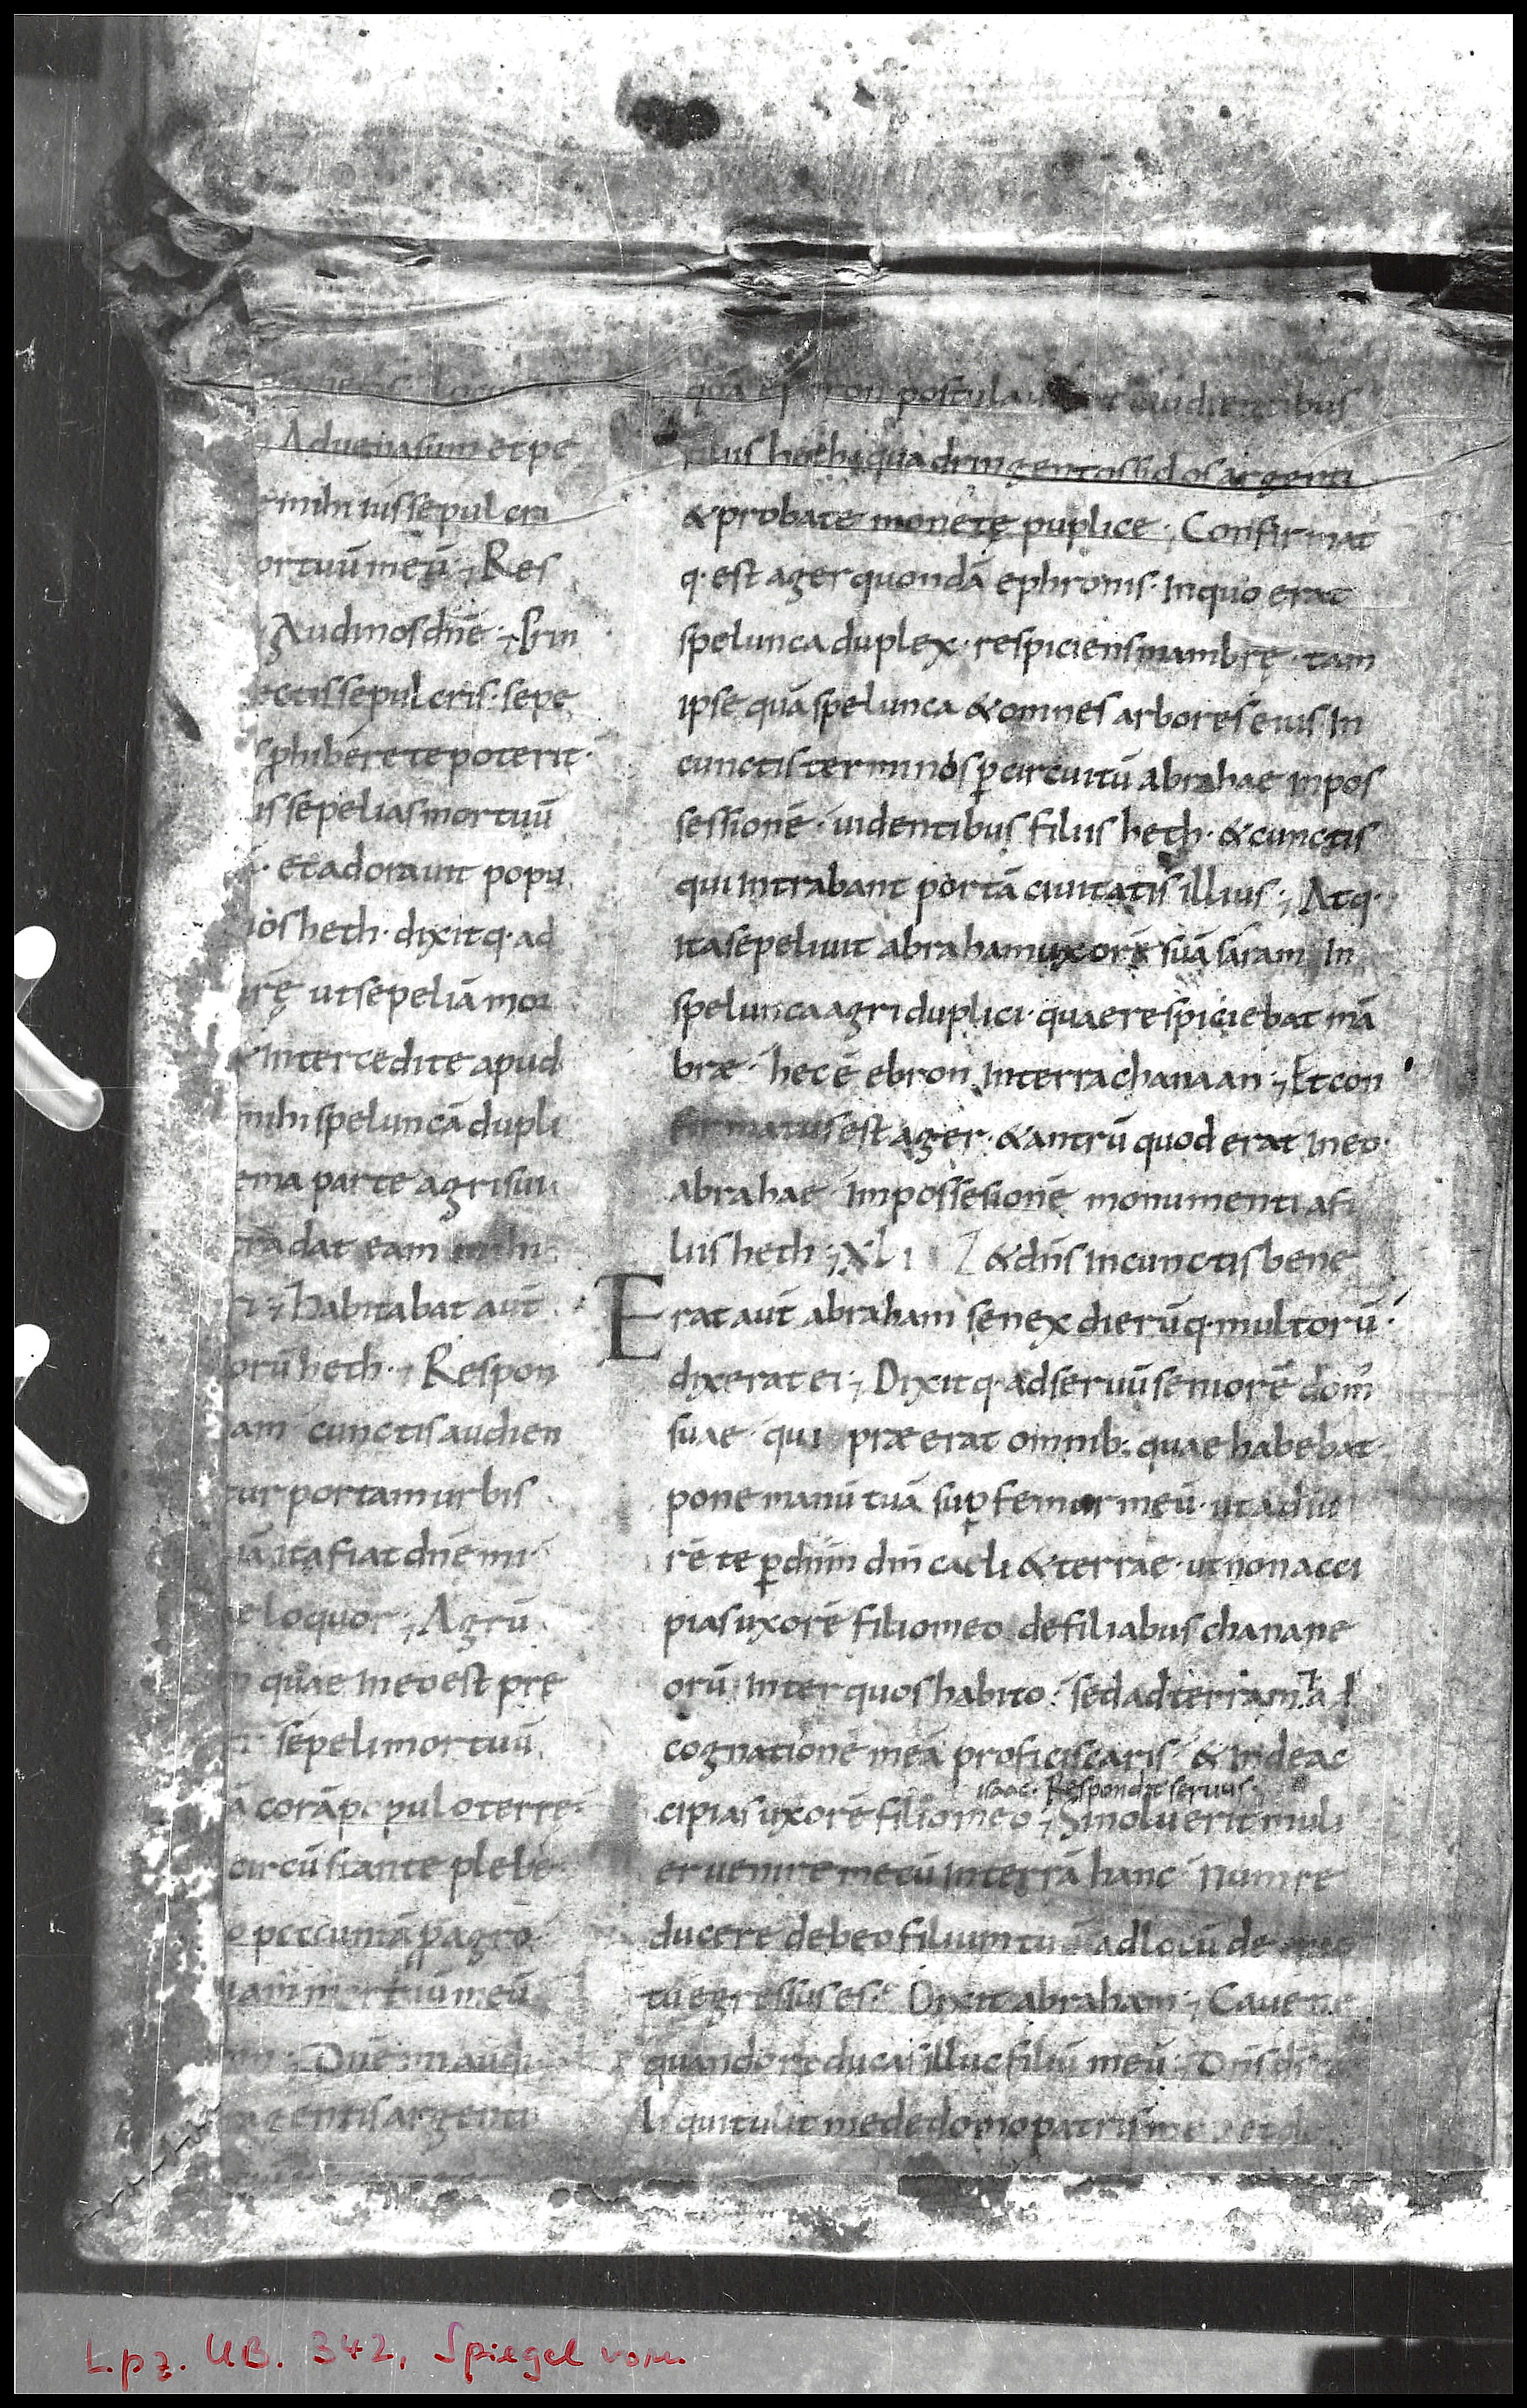 Aduenasum et pe
mihi ius sepulcri
ortuū meū ; Res
Audi nos dn̄e ; prin
ectis sepulcris · sepe
s phibere te poterit ·
is sepelias mortuū
· et adorauit popu
ios heth · dixitq · ad
rę ut sepeliā mor
& intercedite apud
mihi speluncā dupli
ema parte agri sui
tradat eam mihi
; habitabat aut̄
orū heth · ; Respon
am cunctis audien
tur portam urbis
ita fiat dn̄e mi ·
loquor ; Agrū
quae In eo est prę
sepeli mortuū
corā populo terre ·
circū stante plebe
pecuniā p agro
mortuū meū
Dn̄e mi audi
gentis argenti
postula audientibus
filiis heth · quadringentos siclos argenti
& probate monetę puplice · ; Confirmat
q · est ager quondā ephronis · In quo erat
spelunca duplex · respiciens mambrę · tam
ipse quā spelunca & omnes arbores eius In
cunctis terminos p̱ circuitū abrahae in pos
sessionē · uidentibus filiis heth · & cunctis
qui Intrabant portā ciuitatis illius · ; Atq ·
ita sepeliuit abraham uxorē suā saram In
spelunca agri duplici · quae respiciebat mā
bræ · hec ē ebron In terra chanaan · ; Et con
firmatus est ager · & antrū quod erat In eo ·
abrahae · Impossesionē monumenti a fi
liis heth ; XLI & dn̄s In cunctis bene
Erat aut̄ abraham senex dierūq · multorū ·
dixerat ei · ; Dixitq · ad seruū seniorē dom
suae · qui præerat omnib: quae habebat ·
pone manū tuā sup̱ femur meū · ut adiu
rē te p̱ dn̄m dm̄ caeli & terrae · ut non acci
pias uxorē filio meo de filiabus chanane
orū · Inter quos habito · sed ad terram & ad
cognationē meā proficiscaris · & Inde ac
isaac · Respondit seruus
cipias uxorē filio meo · ; Si noluerit muli
er uenire mecū In terrā hanc · Num re
ducere debeo filium tuū ad locū de
tu egressus es · Dixit abraham · ; Caue ne
quando reducas illuc filiū meū · ; Dn̄s
qui tulit me de domo patris mei et de
L.pz. UB. 342, Spiegel vorn.